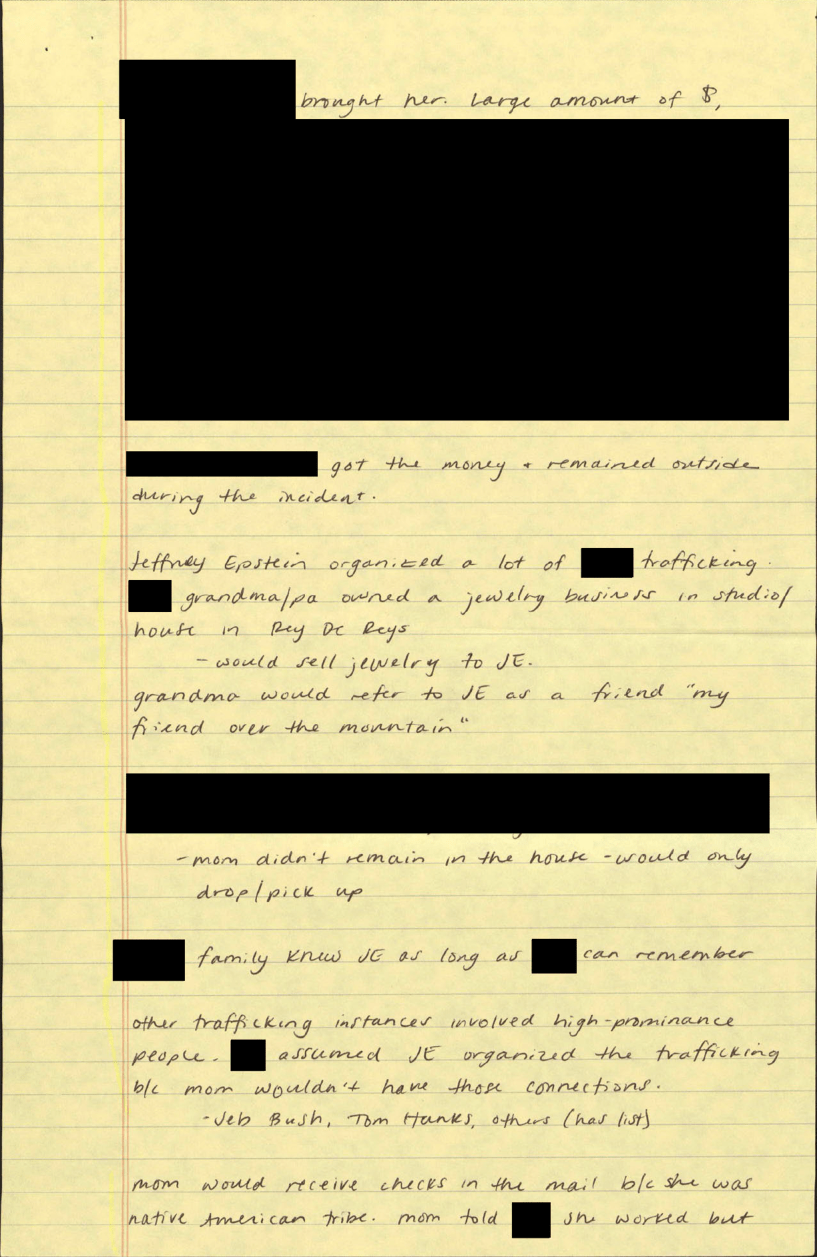 brought her. Large amount of $,
got the money + remained outside
during the incident.
Jeffney Epstein organized a lot of trafficking.
grandma/pa owned a jewelry business in studio/
house in Rey De Reys
- would sell jewelry to JE.
grandma would refer to JE as a friend "my
friend over the mountain"
- mom didn't remain in the house - would only
drop/pick up
family knew JE as long as can remember
other trafficking instances involved high-prominance
people. assumed JE organized the trafficking
b/c mom wouldn't have those connections.
- Jeb Bush, Tom Hanks, others (has list)
mom would receive checks in the mail b/c she was
native American tribe. mom told she worked but